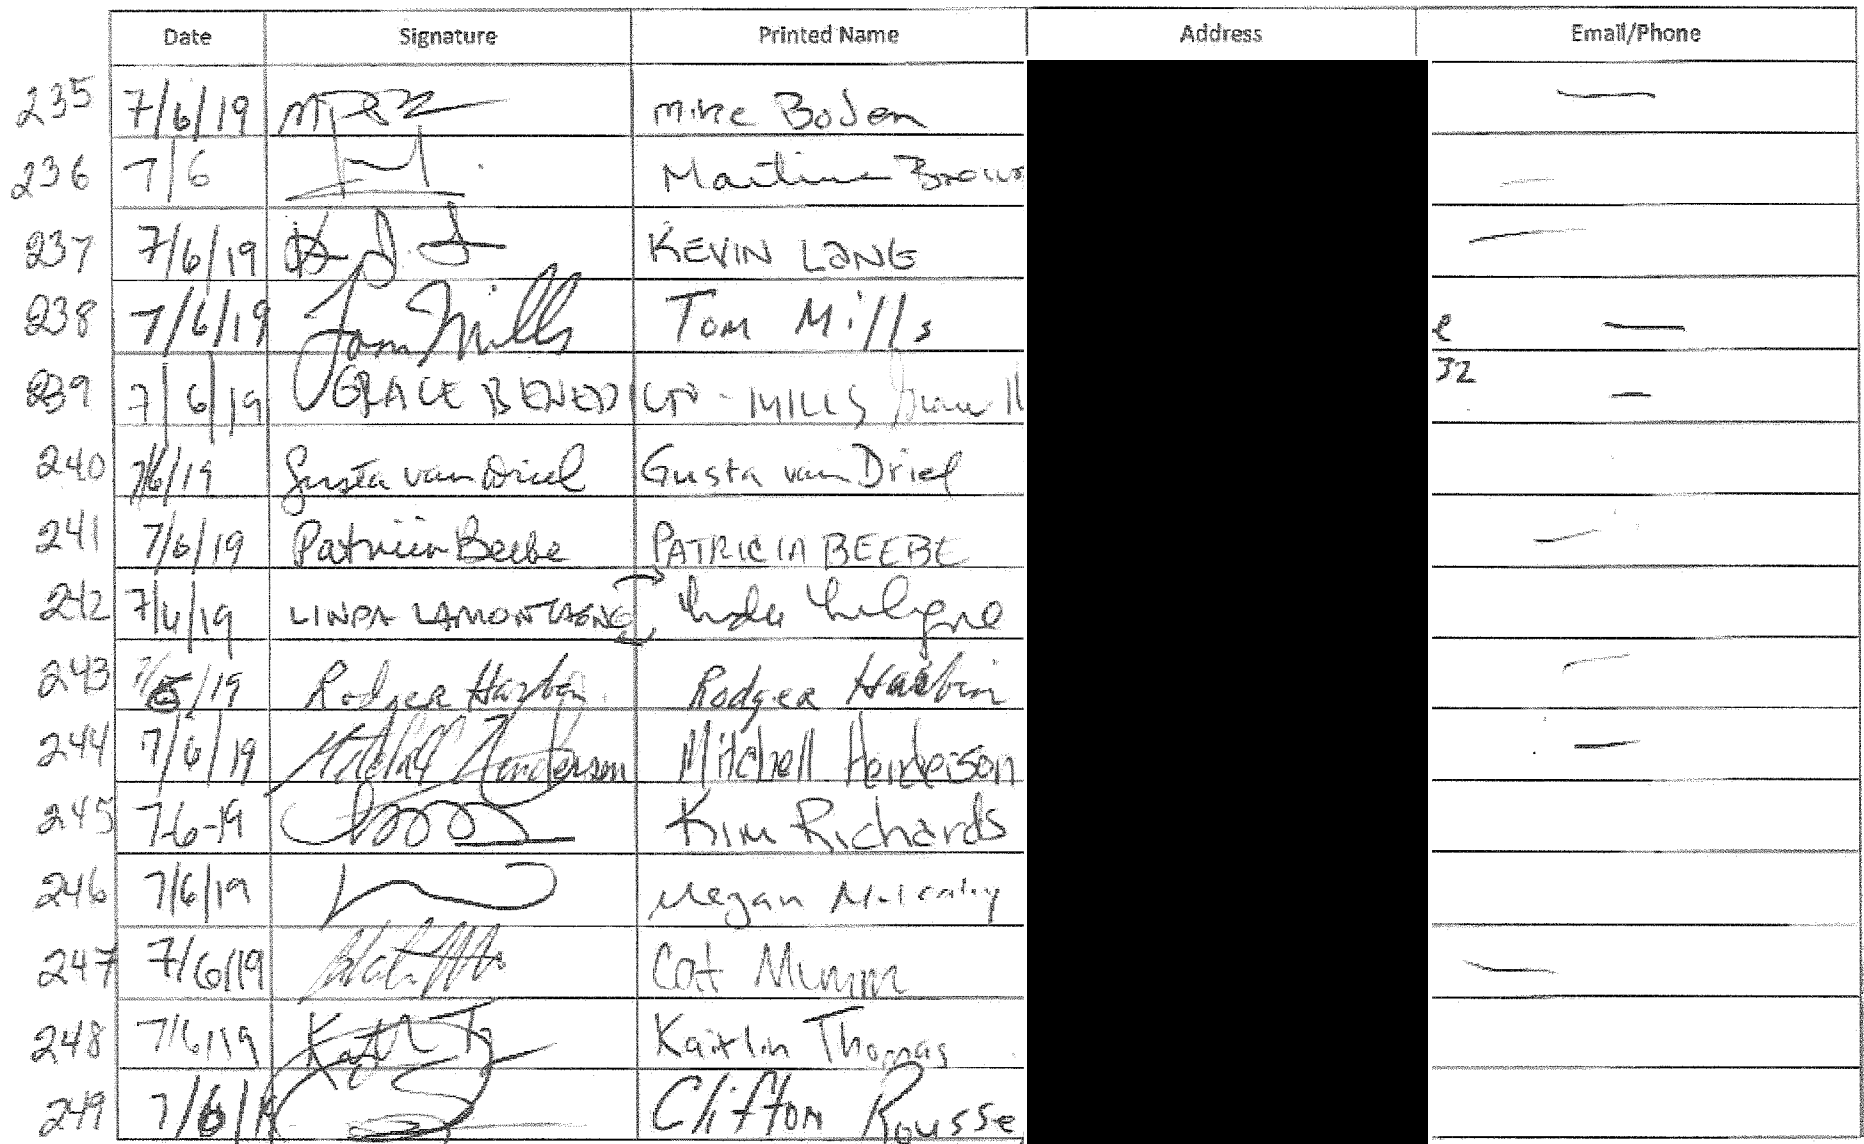 Date Signature Printed Name Address Email/Phone
235 7/6/19 Mike Boden
236 7/6 Brown
237 7/6/19 KEVIN LANG
238 7/6/19 Tom Mills Tom Mills e
239 7/6/19 GRACE 32
240 7/6/19 Gusta van Driel Gusta van Driel
241 7/6/19 Patricia Beebe PATRICIA BEEBE
242 LINDA LAMONTAGNE
243 Rodger Harbin Rodger Harbin
244 7/6/19 Mitchell Henderson Mitchell Henderson
245 7-6-19 Kim Richards
246 7/6/19 Megan
247 7/6/19 Cat Mumm
248 7/6/19 Kaitlin Thomas
249 7/6/19 Clifton Rousse